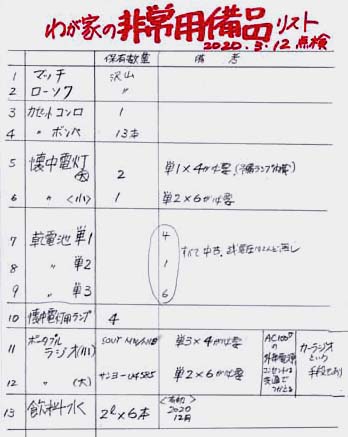 わが家の非常用備品リスト
2020.3.12 点検
保有数量 備考
1 マッチ 沢山
2 ローソク 〃
3 カセットコンロ 1
4 〃 ボンベ 13本
5 懐中電灯 大 2 単1×4が必要
6 〃 〈小〉 1 単2×6が必要
7 乾電池 単1 4
8 〃 単2 1 すべて中古、
9 〃 単3 6
10 懐中電灯用ランプ 4
11 ポータブルラジオ(小) 単3×4が必要
12 〃 (大) サンヨー 単2×6が必要
AC100V
の
非常電源
コンセントは
カーラジオ
という
手段もあり
13 飲料水 2ℓ×6本 〈有効〉
2020
12月